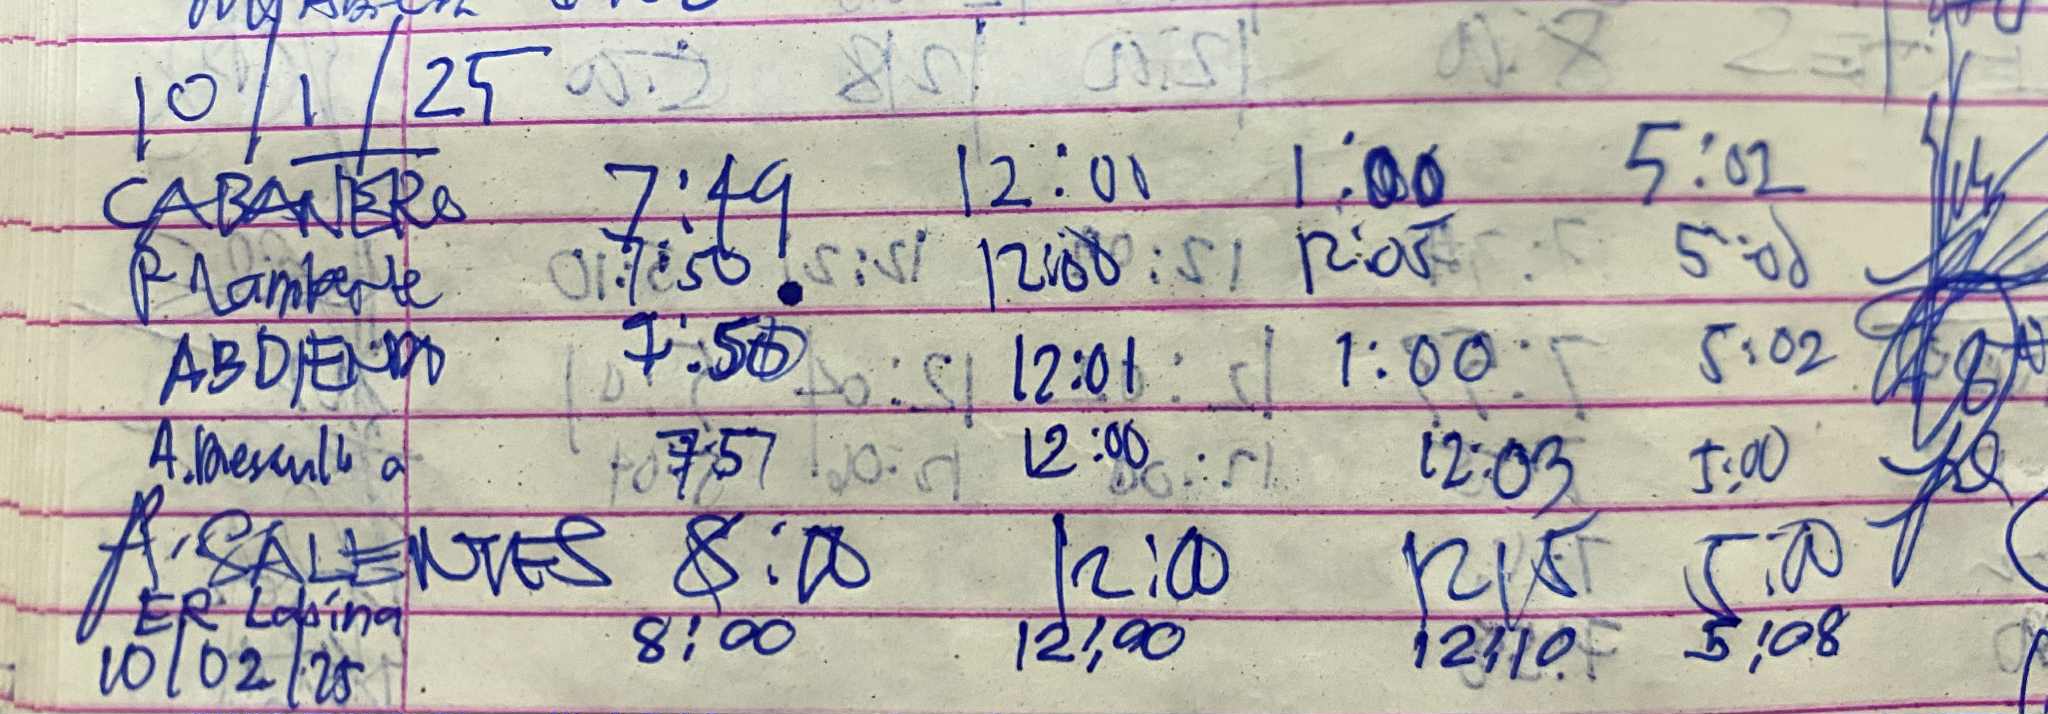 10/1/25
CABANERO 7:49 12:01 1:00 5:02
P. Lamberte 7:50 12:00 12:05 5:00
ABDIENDO 7:50 12:01 1:00 5:02
A. 7:57 12:00 12:03 5:00
A. SALENTES 8:00 12:00 12 15 5:00
ER Lapina 8:00 12:00 12:10 5:08
10/02/25